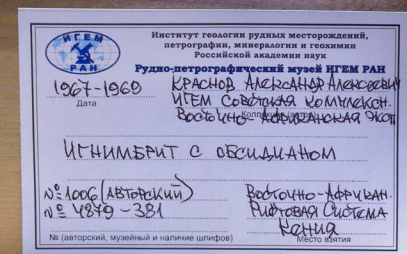 ИГЕМ
РАН
Институт геологии рудных месторождений,
петрографии, минералогии и геохимии
Российской академии наук
Рудно-петрографический музей ИГЕМ РАН
1967-1969
Дата
КРАСНОВ АЛЕКСАНДР АЛЕКСЕЕВИЧ
ИГЕМ СОВЕТСКАЯ КОМПЛЕКСН.
ВОСТОЧНО-АФРИКАНСКАЯ ЭКСП
ИГНИМБРИТ С ОБСИДИАНОМ
№ 1006 (АВТОРСКИЙ)
№ 4879-381
№ (авторский, музейный и наличие шлифов)
ВОСТОЧНО-АФРИКАН.
РИФТОВАЯ СИСТЕМА
КЕНИЯ
Место взятия